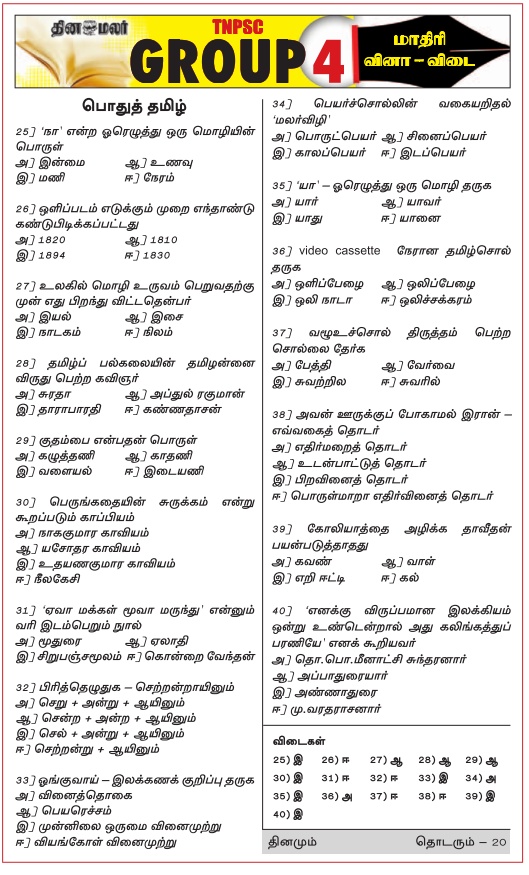 தினமலர்
TNPSC
GROUP 4
மாதிரி
வினா – விடை
பொதுத் தமிழ்
25] ‘நா’ என்ற ஓரெழுத்து ஒரு மொழியின்
பொருள்
அ] இன்மை ஆ] உணவு
இ] மணி ஈ] நேரம்
26] ஒளிப்படம் எடுக்கும் முறை எந்தாண்டு
கண்டுபிடிக்கப்பட்டது
அ] 1820 ஆ] 1810
இ] 1894 ஈ] 1830
27] உலகில் மொழி உருவம் பெறுவதற்கு
முன் எது பிறந்து விட்டதென்பர்
அ] இயல் ஆ] இசை
இ] நாடகம் ஈ] நிலம்
28] தமிழ்ப் பல்கலையின் தமிழன்னை
விருது பெற்ற கவிஞர்
அ] சுரதா ஆ] அப்துல் ரகுமான்
இ] தாராபாரதி ஈ] கண்ணதாசன்
29] குதம்பை என்பதன் பொருள்
அ] கழுத்தணி ஆ] காதணி
இ] வளையல் ஈ] இடையணி
30] பெருங்கதையின் சுருக்கம் என்று
கூறப்படும் காப்பியம்
அ] நாககுமார காவியம்
ஆ] யசோதர காவியம்
இ] உதயணகுமார காவியம்
ஈ] நீலகேசி
31] ‘ஏவா மக்கள் மூவா மருந்து’ என்னும்
வரி இடம்பெறும் நூல்
அ] மூதுரை ஆ] ஏலாதி
இ] சிறுபஞ்சமூலம் ஈ] கொன்றை வேந்தன்
32] பிரித்தெழுதுக – செற்றன்றாயினும்
அ] செறு + அன்று + ஆயினும்
ஆ] சென்ற + அன்ற + ஆயினும்
இ] செல் + அன்று + ஆயினும்
ஈ] செற்றன்று + ஆயினும்
33] ஓங்குவாய் – இலக்கணக் குறிப்பு தருக
அ] வினைத்தொகை
ஆ] பெயரெச்சம்
இ] முன்னிலை ஒருமை வினைமுற்று
ஈ] வியங்கோள் வினைமுற்று
34] பெயர்ச்சொல்லின் வகையறிதல்
‘மலர்விழி’
அ] பொருட்பெயர் ஆ] சினைப்பெயர்
இ] காலப்பெயர் ஈ] இடப்பெயர்
35] ‘யா’ – ஓரெழுத்து ஒரு மொழி தருக
அ] யார் ஆ] யாவர்
இ] யாது ஈ] யானை
36] video cassette நேரான தமிழ்சொல்
தருக
அ] ஒளிப்பேழை ஆ] ஒலிப்பேழை
இ] ஒலி நாடா ஈ] ஒலிச்சக்கரம்
37] வழூஉச்சொல் திருத்தம் பெற்ற
சொல்லை தேர்க
அ] பேத்தி ஆ] வேர்வை
இ] சுவற்றில ஈ] சுவரில்
38] அவன் ஊருக்குப் போகாமல் இரான் –
எவ்வகைத் தொடர்
அ] எதிர்மறைத் தொடர்
ஆ] உடன்பாட்டுத் தொடர்
இ] பிறவினைத் தொடர்
ஈ] பொருள்மாறா எதிர்வினைத் தொடர்
39] கோலியாத்தை அழிக்க தாவீதன்
பயன்படுத்தாதது
அ] கவண் ஆ] வாள்
இ] எறி ஈட்டி ஈ] கல்
40] ‘எனக்கு விருப்பமான இலக்கியம்
ஒன்று உண்டென்றால் அது கலிங்கத்துப்
பரணியே’ எனக் கூறியவர்
அ] தொ.பொ.மீனாட்சி சுந்தரனார்
ஆ] அப்பாதுரையார்
இ] அண்ணாதுரை
ஈ] மு.வரதராசனார்
விடைகள்
25) இ 26) ஈ 27) ஆ 28) ஆ 29) ஆ
30) இ 31) ஈ 32) ஈ 33) இ 34) அ
35) இ 36) அ 37) ஈ 38) ஈ 39) இ
40) இ
தினமும் தொடரும் – 20